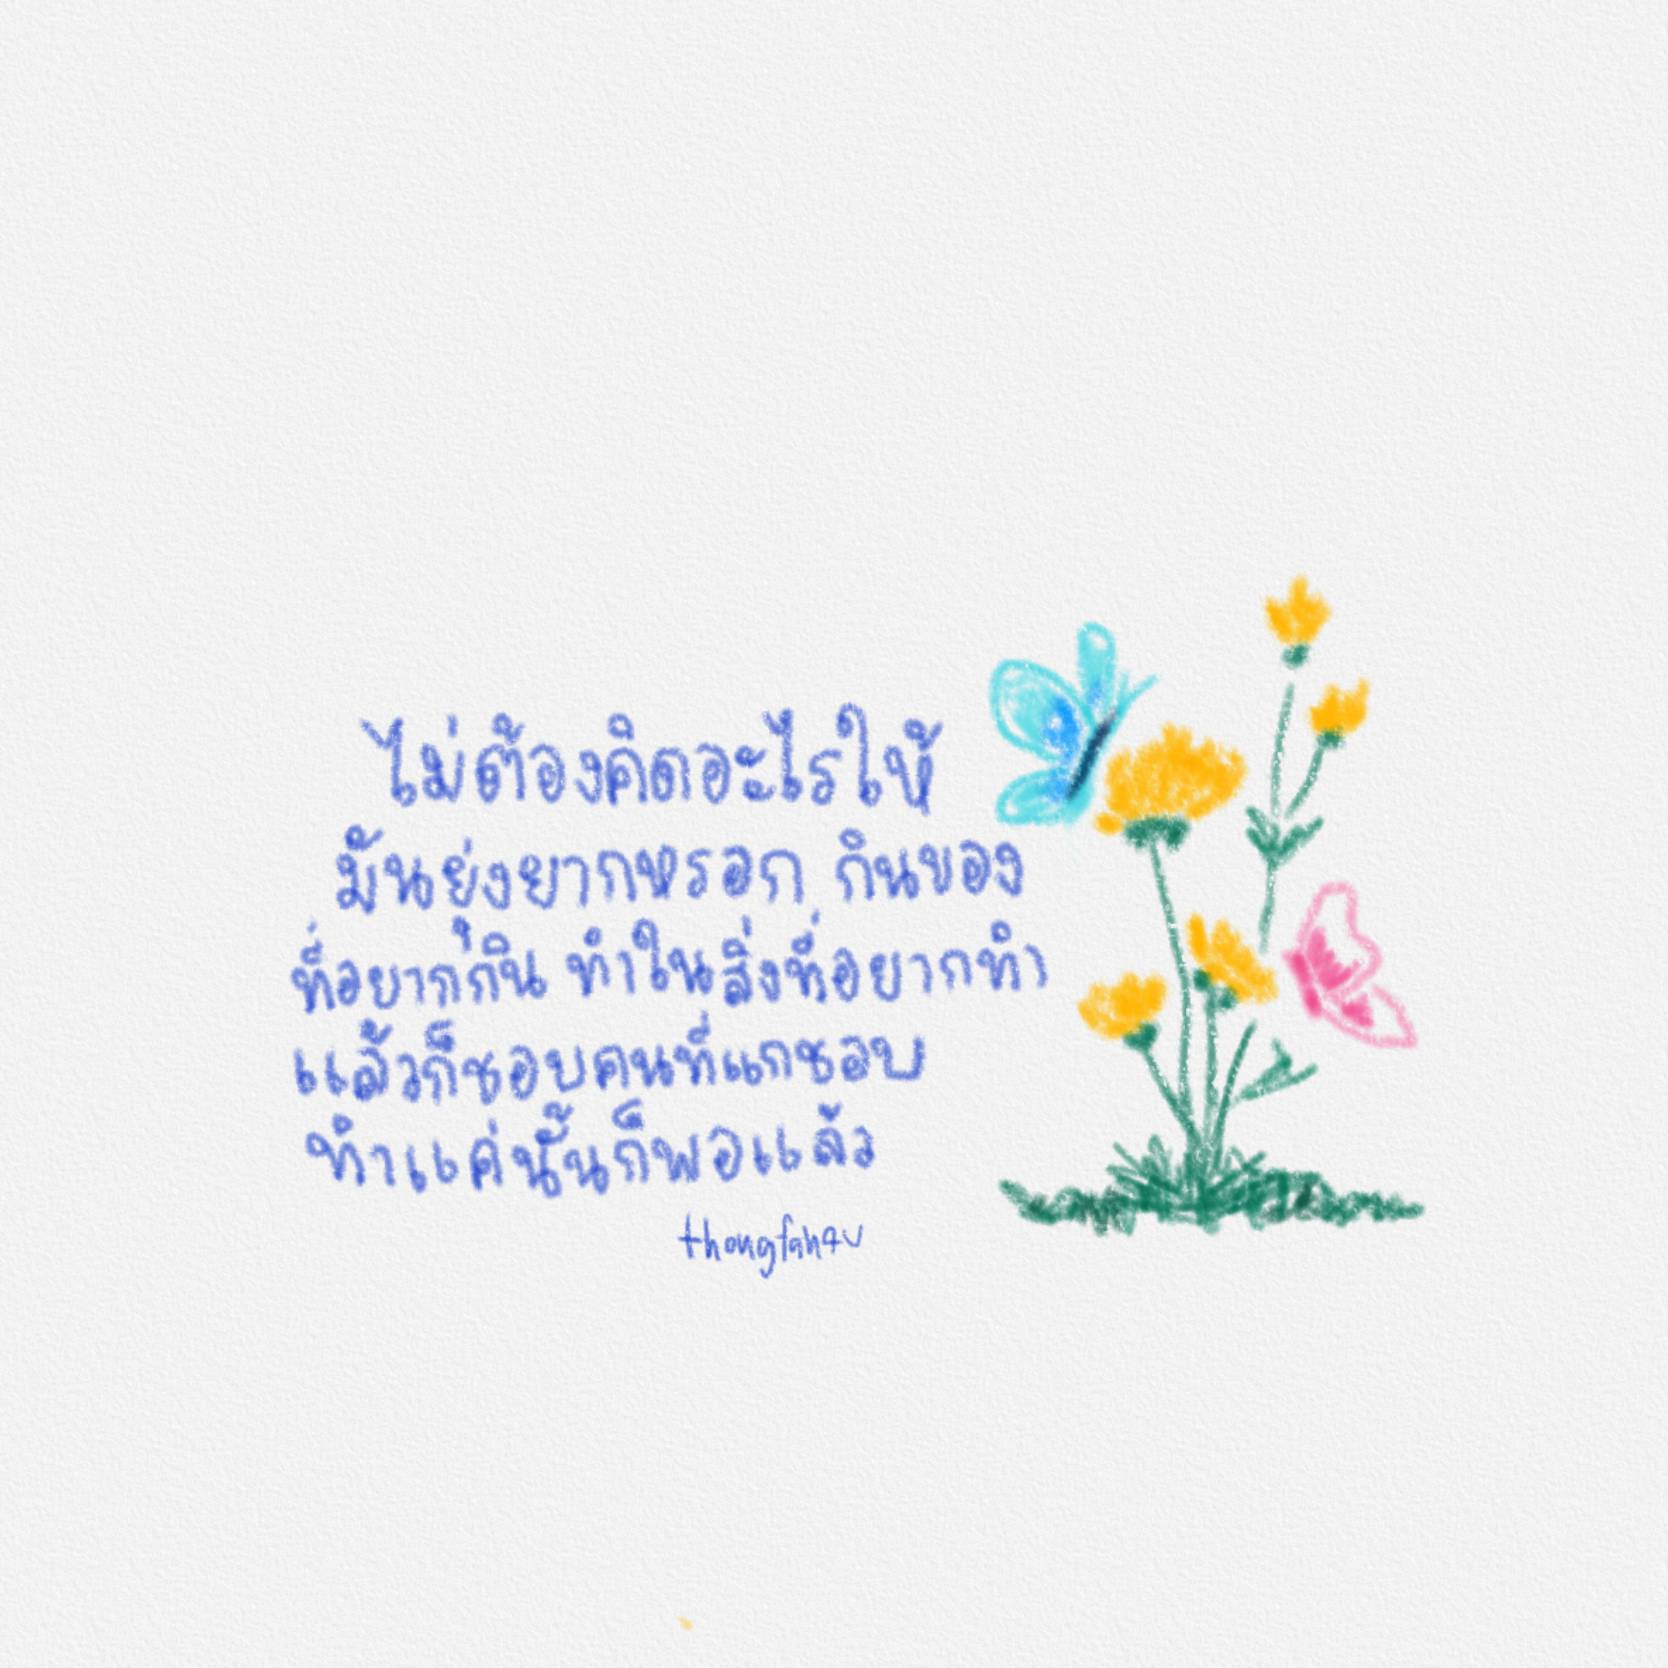 ไม่ต้องคิดอะไรให้
มันยุ่งยากหรอก กินของ
ที่อยากกิน ทำในสิ่งที่อยากทำ
แล้วก็ชอบคนที่แกชอบ
ทำแค่นั้นก็พอแล้ว
thongfah4u